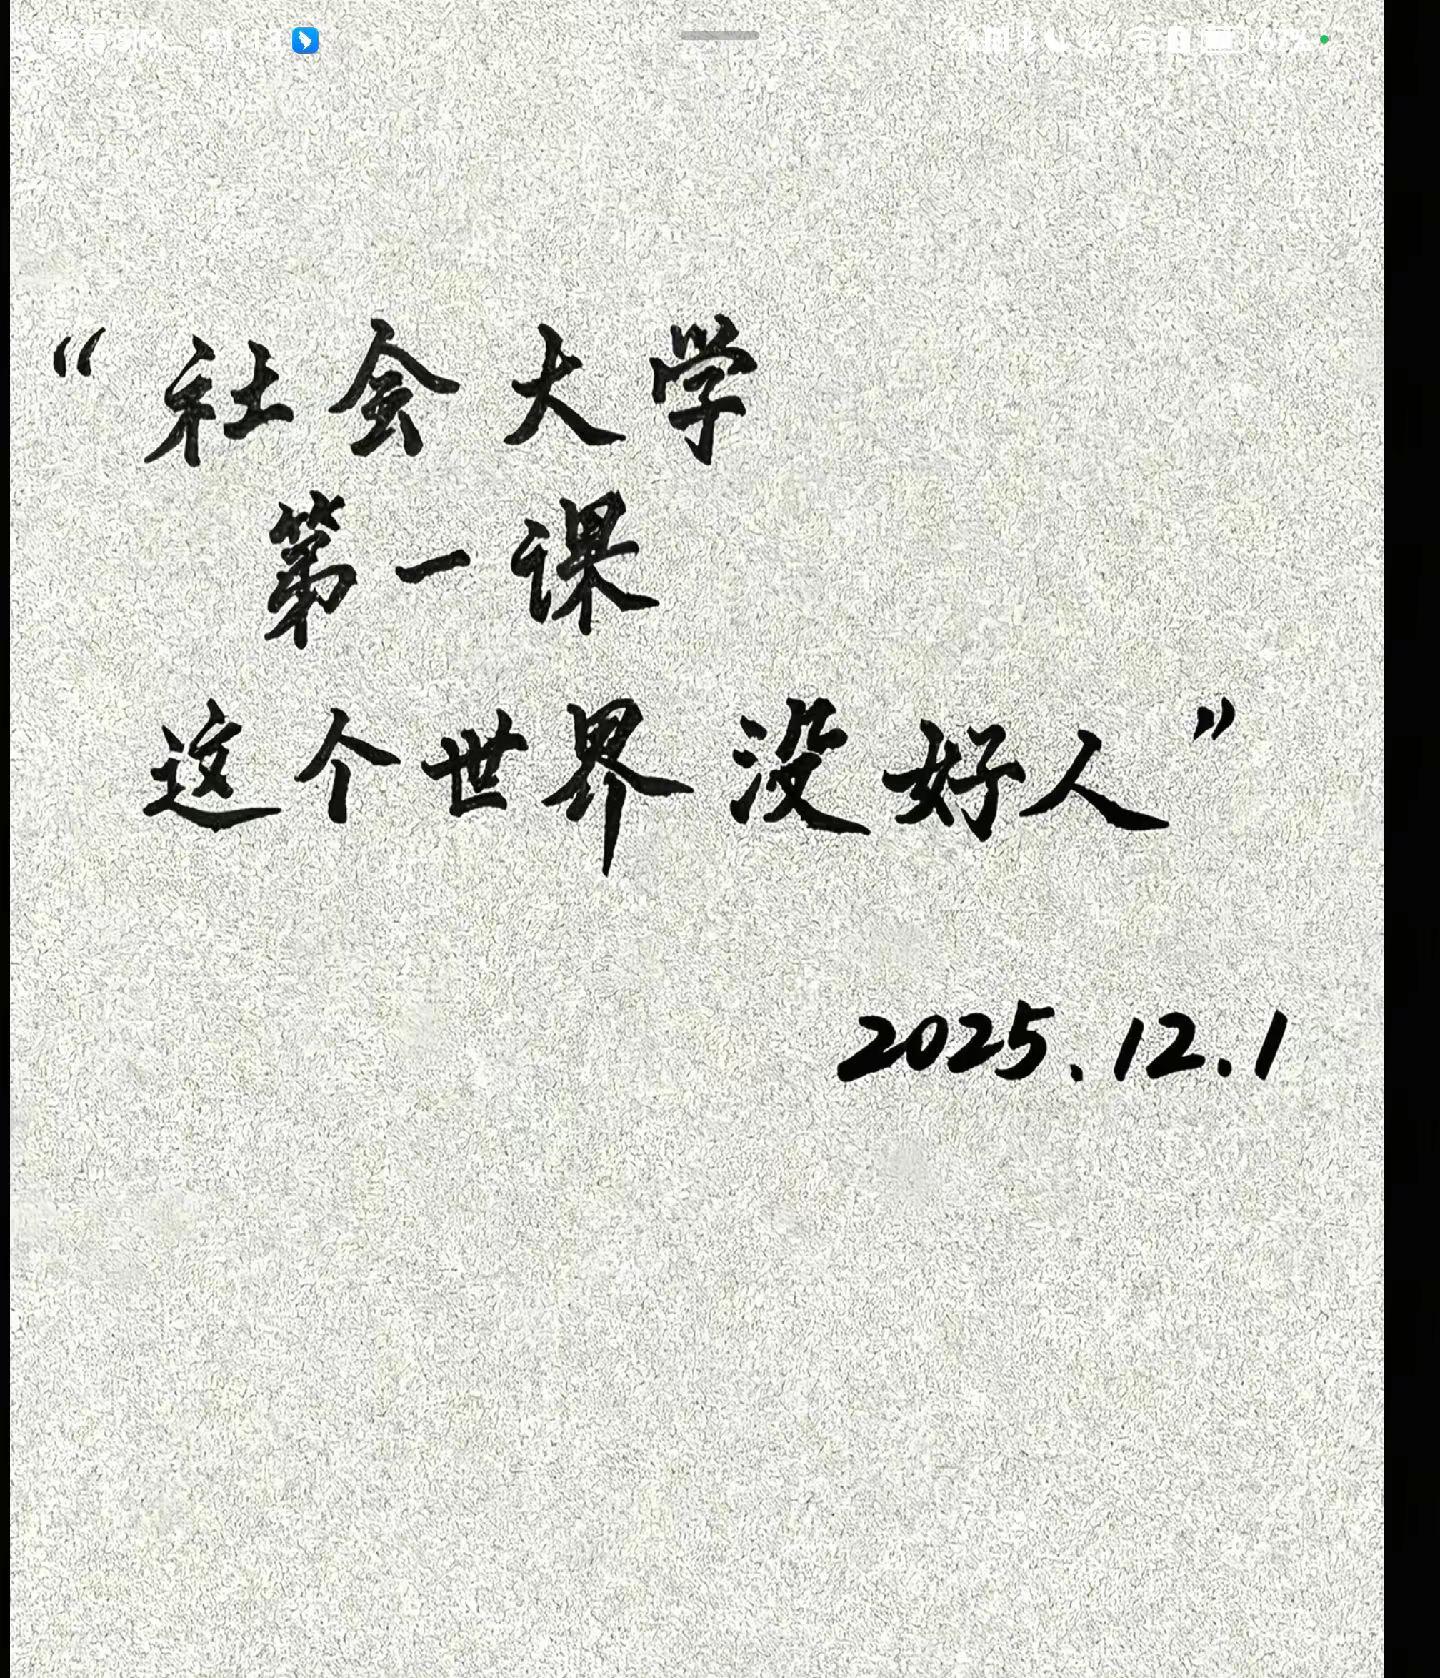 “社会大学
第一课
这个世界没好人”
2025.12.1